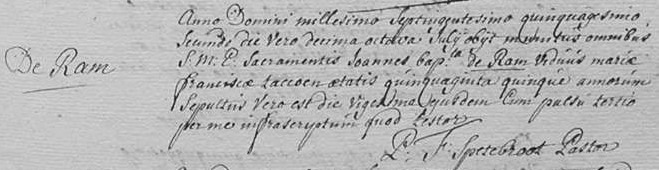 Anno Domini millesimo Septingentesimo quinquagesimo
Secundo die Vero decima octava July obijt munitus omnibus
De Ram
S. M. E. Sacramentis Joannes bap.ta de Ram Viduus mariæ
franciscæ taccoen ætatis quinquaginta quinque annorum
Sepultus Vero est die vigesima ejusdem Cum pulsu tertio
per me infrascryptum quod testor
P. F. Spetebroot Pastor